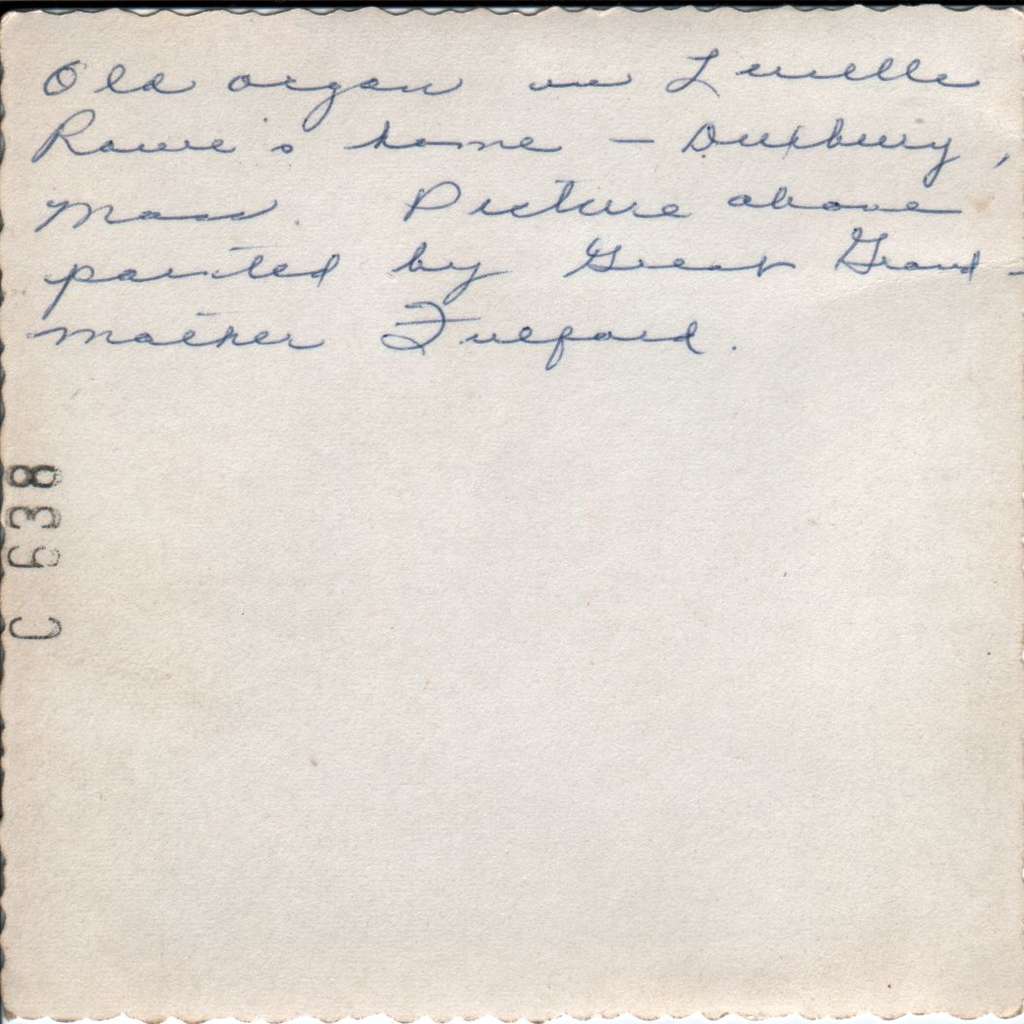 Old organ in Lucille
Rowe's home – Duxbury,
Mass. Picture above
painted by Great Grand-
mother Fulford.
C 638